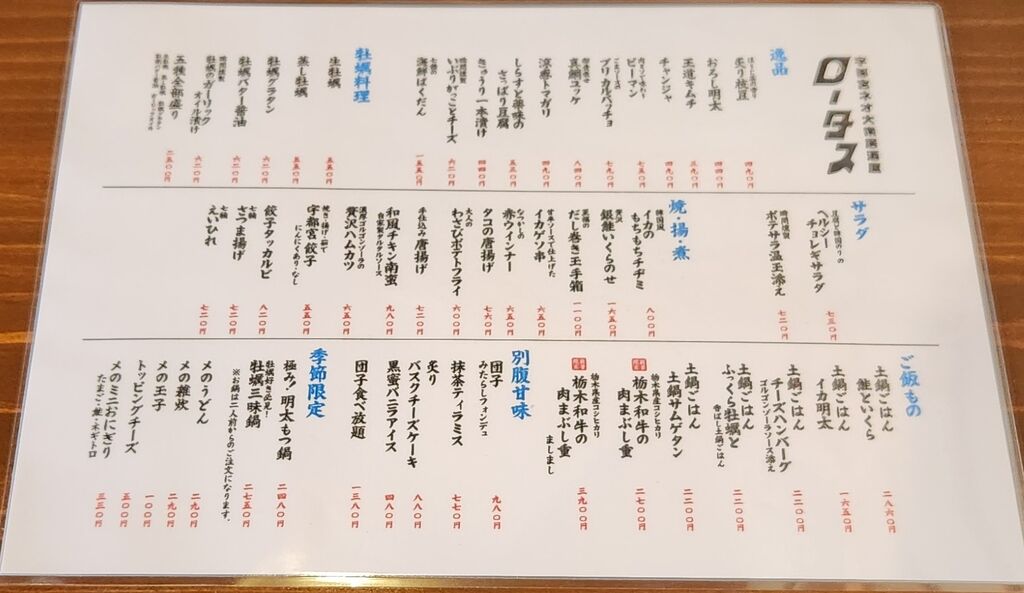 ロータス
逸品
炙り枝豆
四九〇円
おろし明太
四四〇円
王道キムチ
三九〇円
チャンジャ
四九〇円
ピーマン
七五〇円
ブリカルパッチョ
七九〇円
真鯛ユッケ
八四〇円
涼香トマガリ
四九〇円
しらすと薬味の
さっぱり豆腐
五三〇円
きゅうり一本漬け
四四〇円
いぶりがっことチーズ
六二〇円
七種の
海鮮ばくだん
一五五〇円
牡蠣料理
生牡蠣
五五〇円
蒸し牡蠣
五五〇円
牡蠣グラタン
六二〇円
牡蠣バター醤油
六二〇円
牡蠣のガーリック
オイル漬け
六二〇円
五種全部盛り
二五〇〇円
サラダ
豆腐と韓国のりの
ヘルシー
チョレギサラダ
七五〇円
ポテサラ温玉添え
七二〇円
焼・揚・煮
韓国風
イカの
もちもちチヂミ
八〇〇円
贅沢
銀鮭いくらのせ
一六五〇円
至福の
だし巻き玉手箱
一一〇〇円
甘辛ソースで仕上げた
イカゲソ串
六五〇円
赤ウインナー
六五〇円
タコの唐揚げ
七六〇円
大人の
わさびポテトフライ
六〇〇円
手仕込み唐揚げ
七二〇円
和風チキン南蛮
自家製タルタルソース
九八〇円
濃厚ゴルゴンゾーラの
贅沢ハムカツ
六五〇円
焼き・揚げ・茹で
宇都宮餃子
にんにくあり・なし
五五〇円
餃子タッカルビ
八二〇円
七輪
さつま揚げ
七二〇円
七輪
えいひれ
七二〇円
ご飯もの
土鍋ごはん
鮭といくら
二八六〇円
土鍋ごはん
イカ明太
一六五〇円
土鍋ごはん
チーズハンバーグ
ゴルゴンゾーラソース添え
二二〇〇円
土鍋ごはん
ふっくら牡蠣と
香ばし土鍋ごはん
二二〇〇円
土鍋ごはん
土鍋サムゲタン
二二〇〇円
栃木県産コシヒカリ
栃木和牛の
肉まぶし重
二七〇〇円
栃木県産コシヒカリ
栃木和牛の
肉まぶし重
ましまし
三九〇〇円
別腹甘味
団子
みたらしフォンデュ
九八〇円
抹茶ティラミス
七七〇円
炙り
バスクチーズケーキ
八八〇円
黒蜜バニラアイス
四八〇円
団子食べ放題
一三八〇円
季節限定
極み！明太もつ鍋
二四八〇円
牡蠣好き必見！
牡蠣三昧鍋
二七五〇円
※お鍋は二人前からのご注文になります。
〆のうどん
二九〇円
〆の雑炊
二九〇円
〆の玉子
一〇〇円
トッピングチーズ
五〇〇円
〆のミニおにぎり
たまご・鮭・ネギトロ
三三〇円